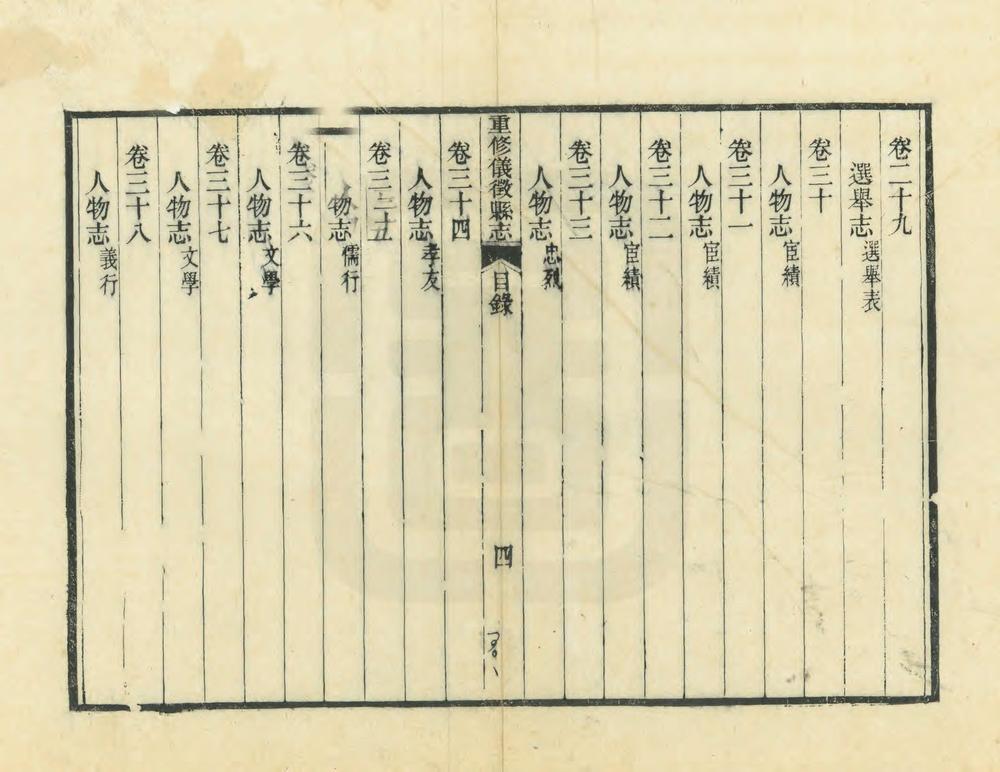 卷二十九
選舉志 選舉表
卷三十
人物志 宦績
卷三十一
人物志 宦績
卷三十二
人物志 宦績
卷三十三
人物志 忠烈
重修儀徵縣志 目錄 四
卷三十四
人物志 孝友
卷三十五
物志 儒行
卷三十六
人物志 文學
卷三十七
人物志 文學
卷三十八
人物志 義行